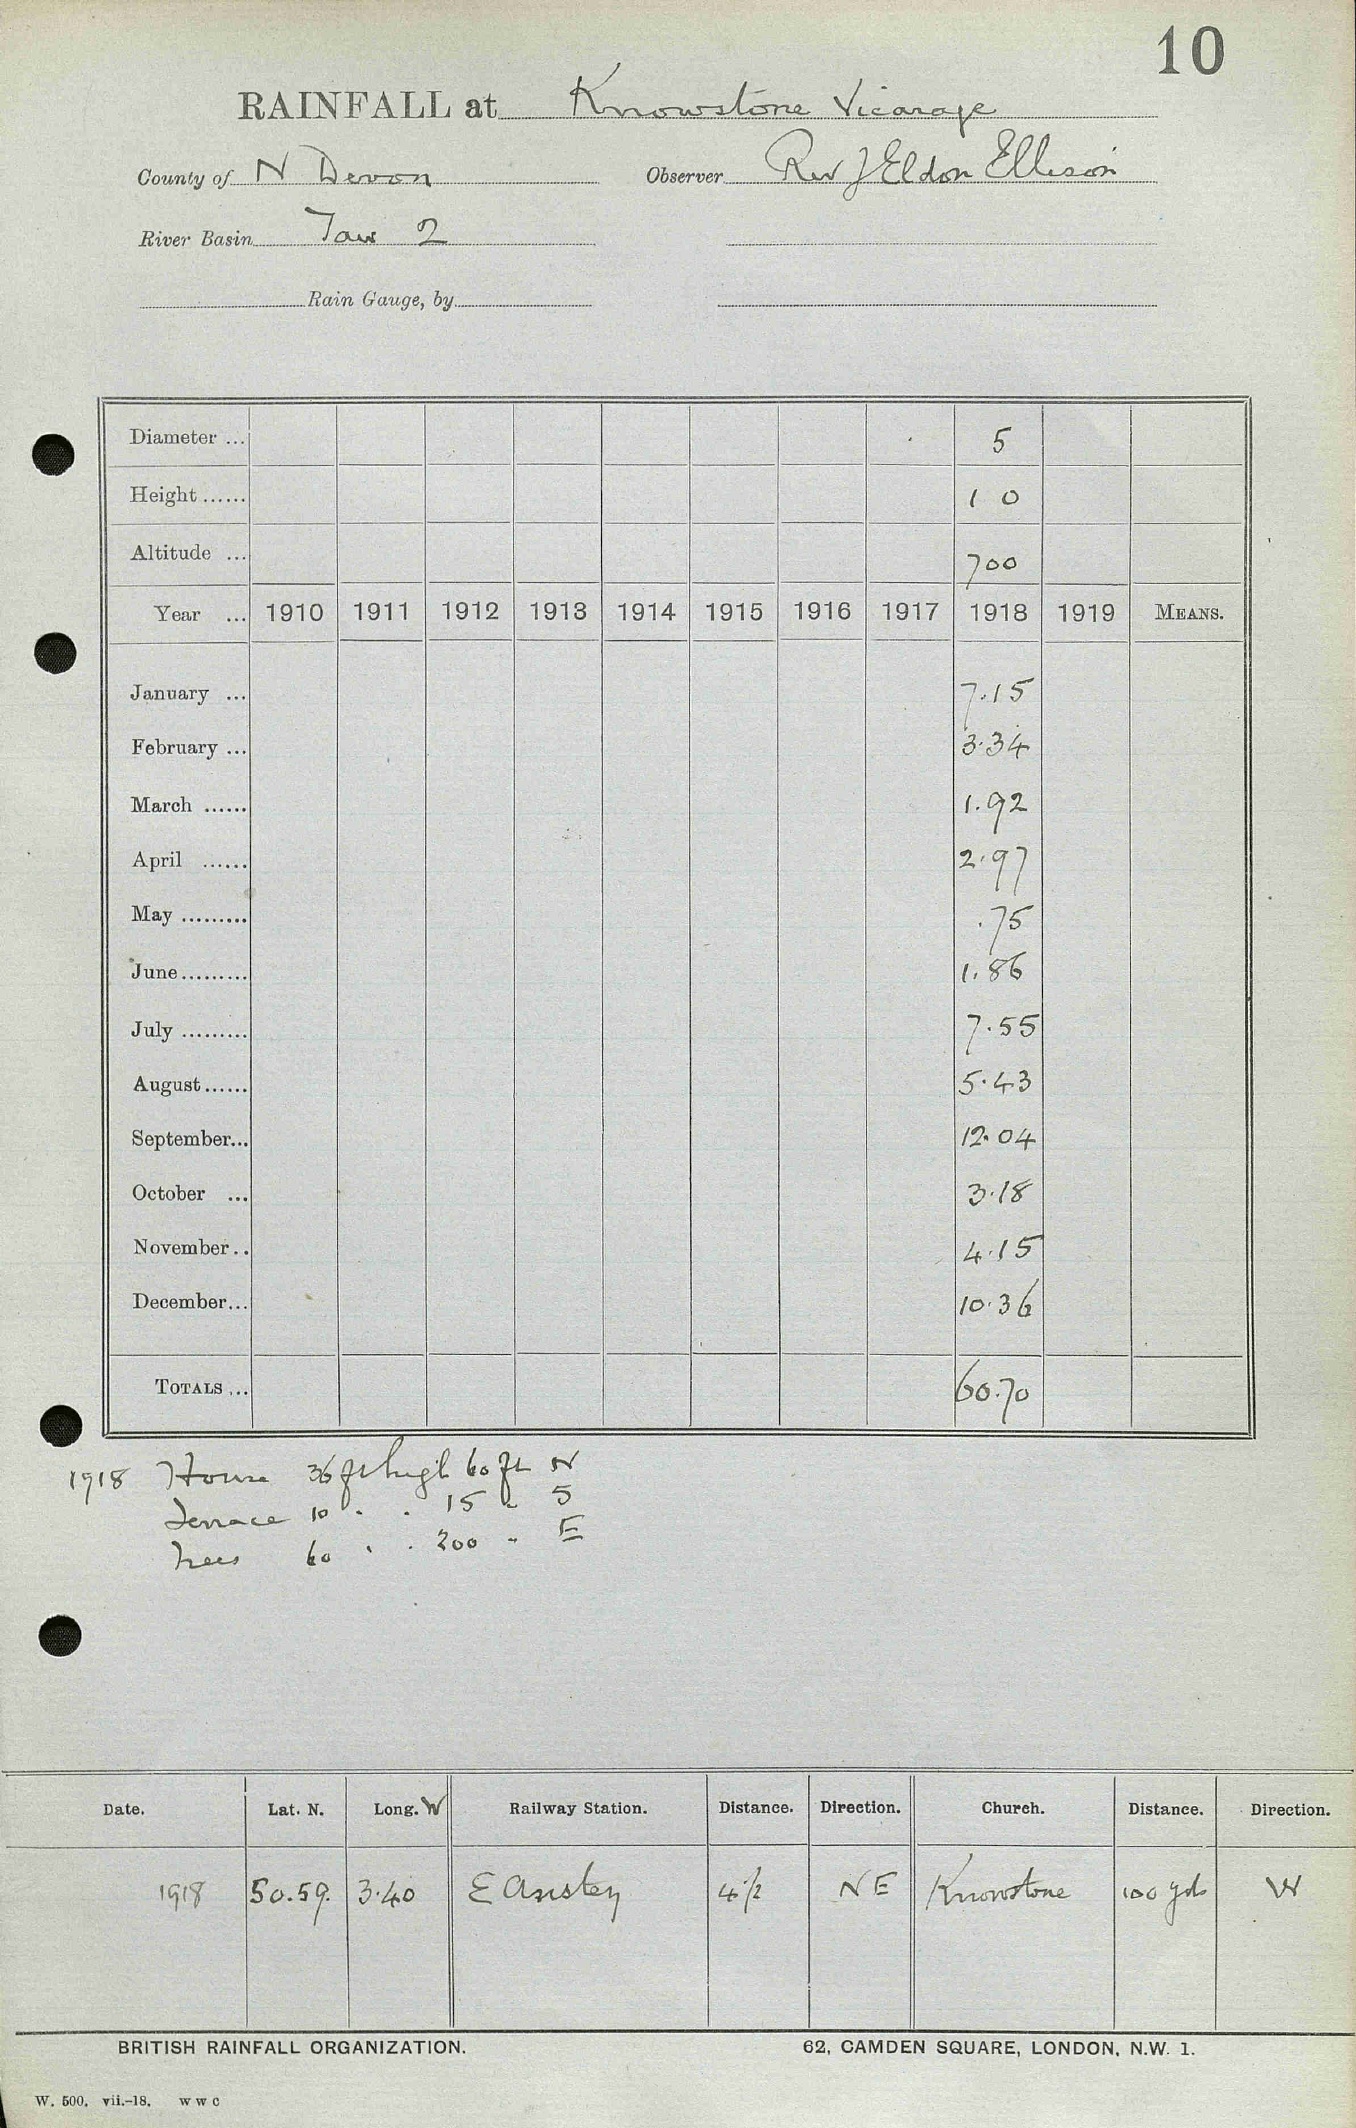 10
RAINFALL at Knowstone Vicarage
County of N Devon Observer Rev J Eldon Ellison
River Basin Taw 2
Rain Gauge, by
Diameter ... 5
Height ...... 1 0
Altitude ... 700
Year ... 1910 1911 1912 1913 1914 1915 1916 1917 1918 1919 MEANS.
January ... 7.15
February ... 3.34
March ...... 1.92
April ...... 2.97
May ......... .75
June ......... 1.86
July ......... 7.55
August ...... 5.43
September... 12.04
October ... 3.18
November .. 4.15
December... 10.36
TOTALS ... 60.70
1918 House 36 ft high 60 ft N
Terrace 10 " " 15 " S
Trees 60 " " 200 " E
Date. Lat. N. Long. W Railway Station. Distance. Direction. Church. Distance. Direction.
1918 50.59. 3.40 E Anstey 4½ NE Knowstone 100 yds W
BRITISH RAINFALL ORGANIZATION. 62, CAMDEN SQUARE, LONDON, N.W. 1.
W. 500. vii.-18. W W C